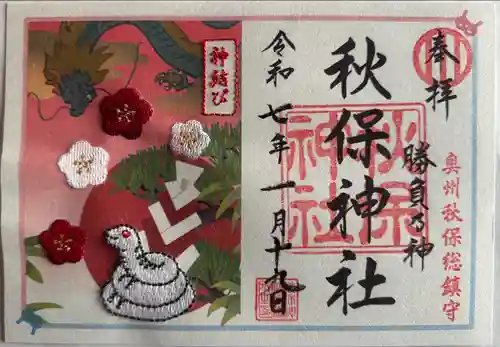 奉拝
奥州秋保総鎮守
勝負の神
秋保神社
秋保
神社
令和七年一月十九日
神結び